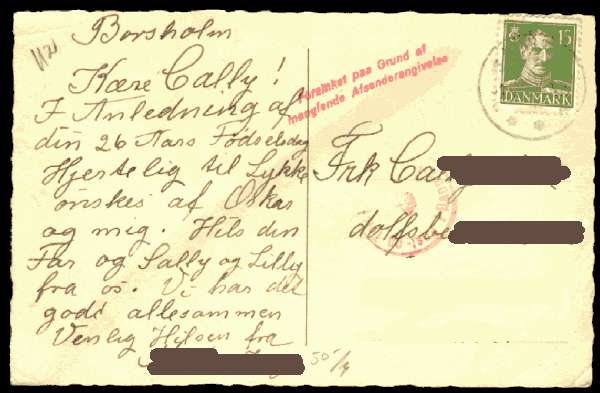 Borsholm
Kære Cally!
I Anledning af
din 26 Aars Fødselsdag
Hjertelig til Lykke
ønskes af Oskar
og mig. Hils din
Far og Sally og Lilly
fra os. Vi har det
godt allesammen
Venlig Hilsen fra
50
Forsinket paa Grund af
manglende Afsenderangivelse
15
DANMARK
Frk
dolfsbe